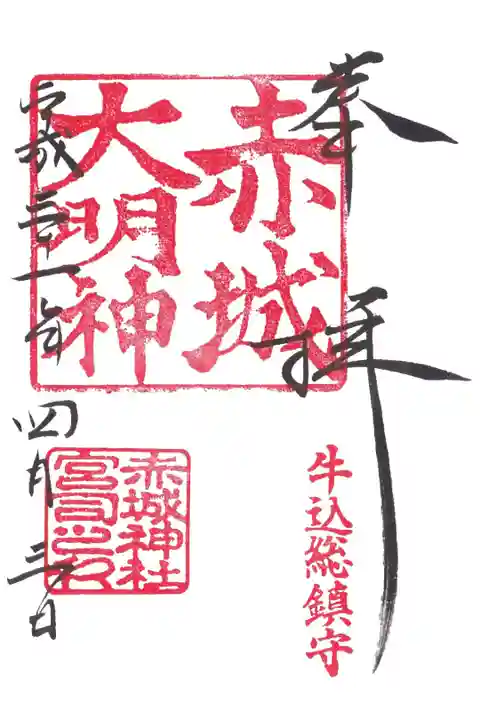 奉拝
赤城
大明神
牛込総鎮守
赤城神社
宮司之印
平成三十一年四月三日